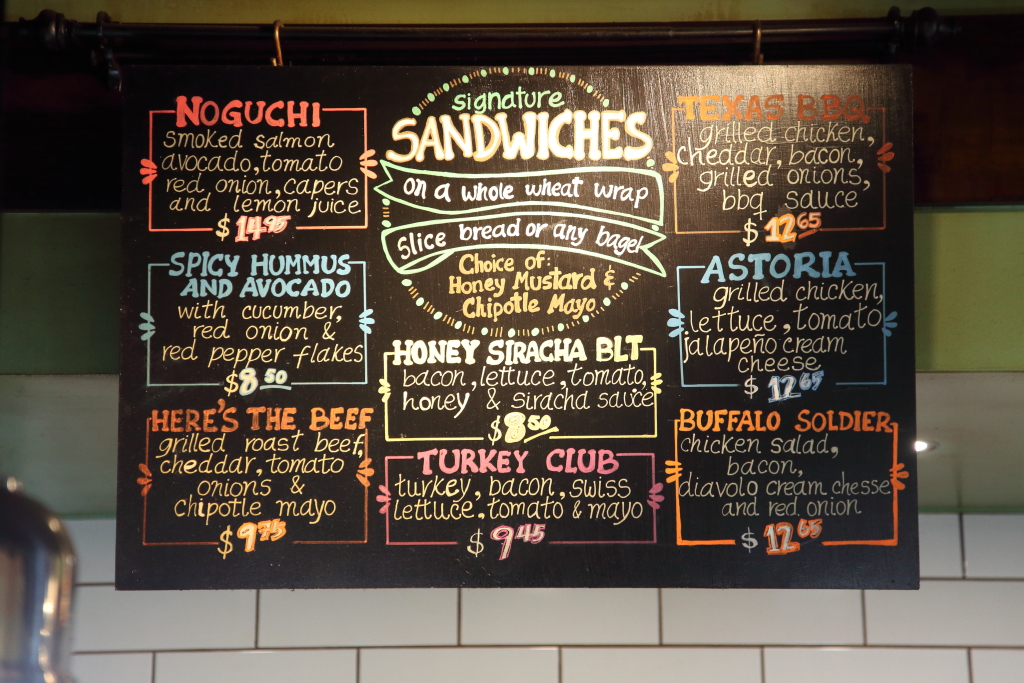 signature
SANDWICHES
on a whole wheat wrap
Slice bread or any bagel
Choice of:
Honey Mustard &
Chipotle Mayo
NOGUCHI
smoked salmon
avocado, tomato
red onion, capers
and lemon juice
$14.95
SPICY HUMMUS
AND AVOCADO
with cucumber,
red onion &
red pepper flakes
$8.50
HERE'S THE BEEF
grilled roast beef,
cheddar, tomato
onions &
chipotle mayo
$9.75
HONEY SIRACHA BLT
bacon, lettuce, tomato,
honey & siracha sauce
$8.50
TURKEY CLUB
turkey, bacon, swiss
lettuce, tomato & mayo
$9.45
TEXAS BBQ
grilled chicken,
cheddar, bacon,
grilled onions,
bbq sauce
$12.65
ASTORIA
grilled chicken,
lettuce, tomato
jalapeño cream
cheese
$12.65
BUFFALO SOLDIER
chicken salad,
bacon,
diavolo cream chesse
and red onion
$12.65